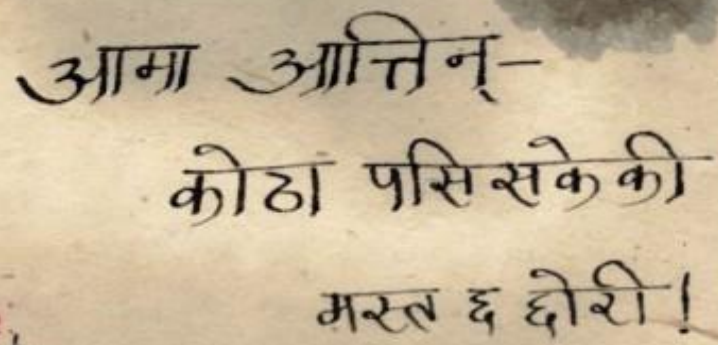 आमा आत्तिन्–
कोठा पसिसकेकी
मस्त छ छोरी!